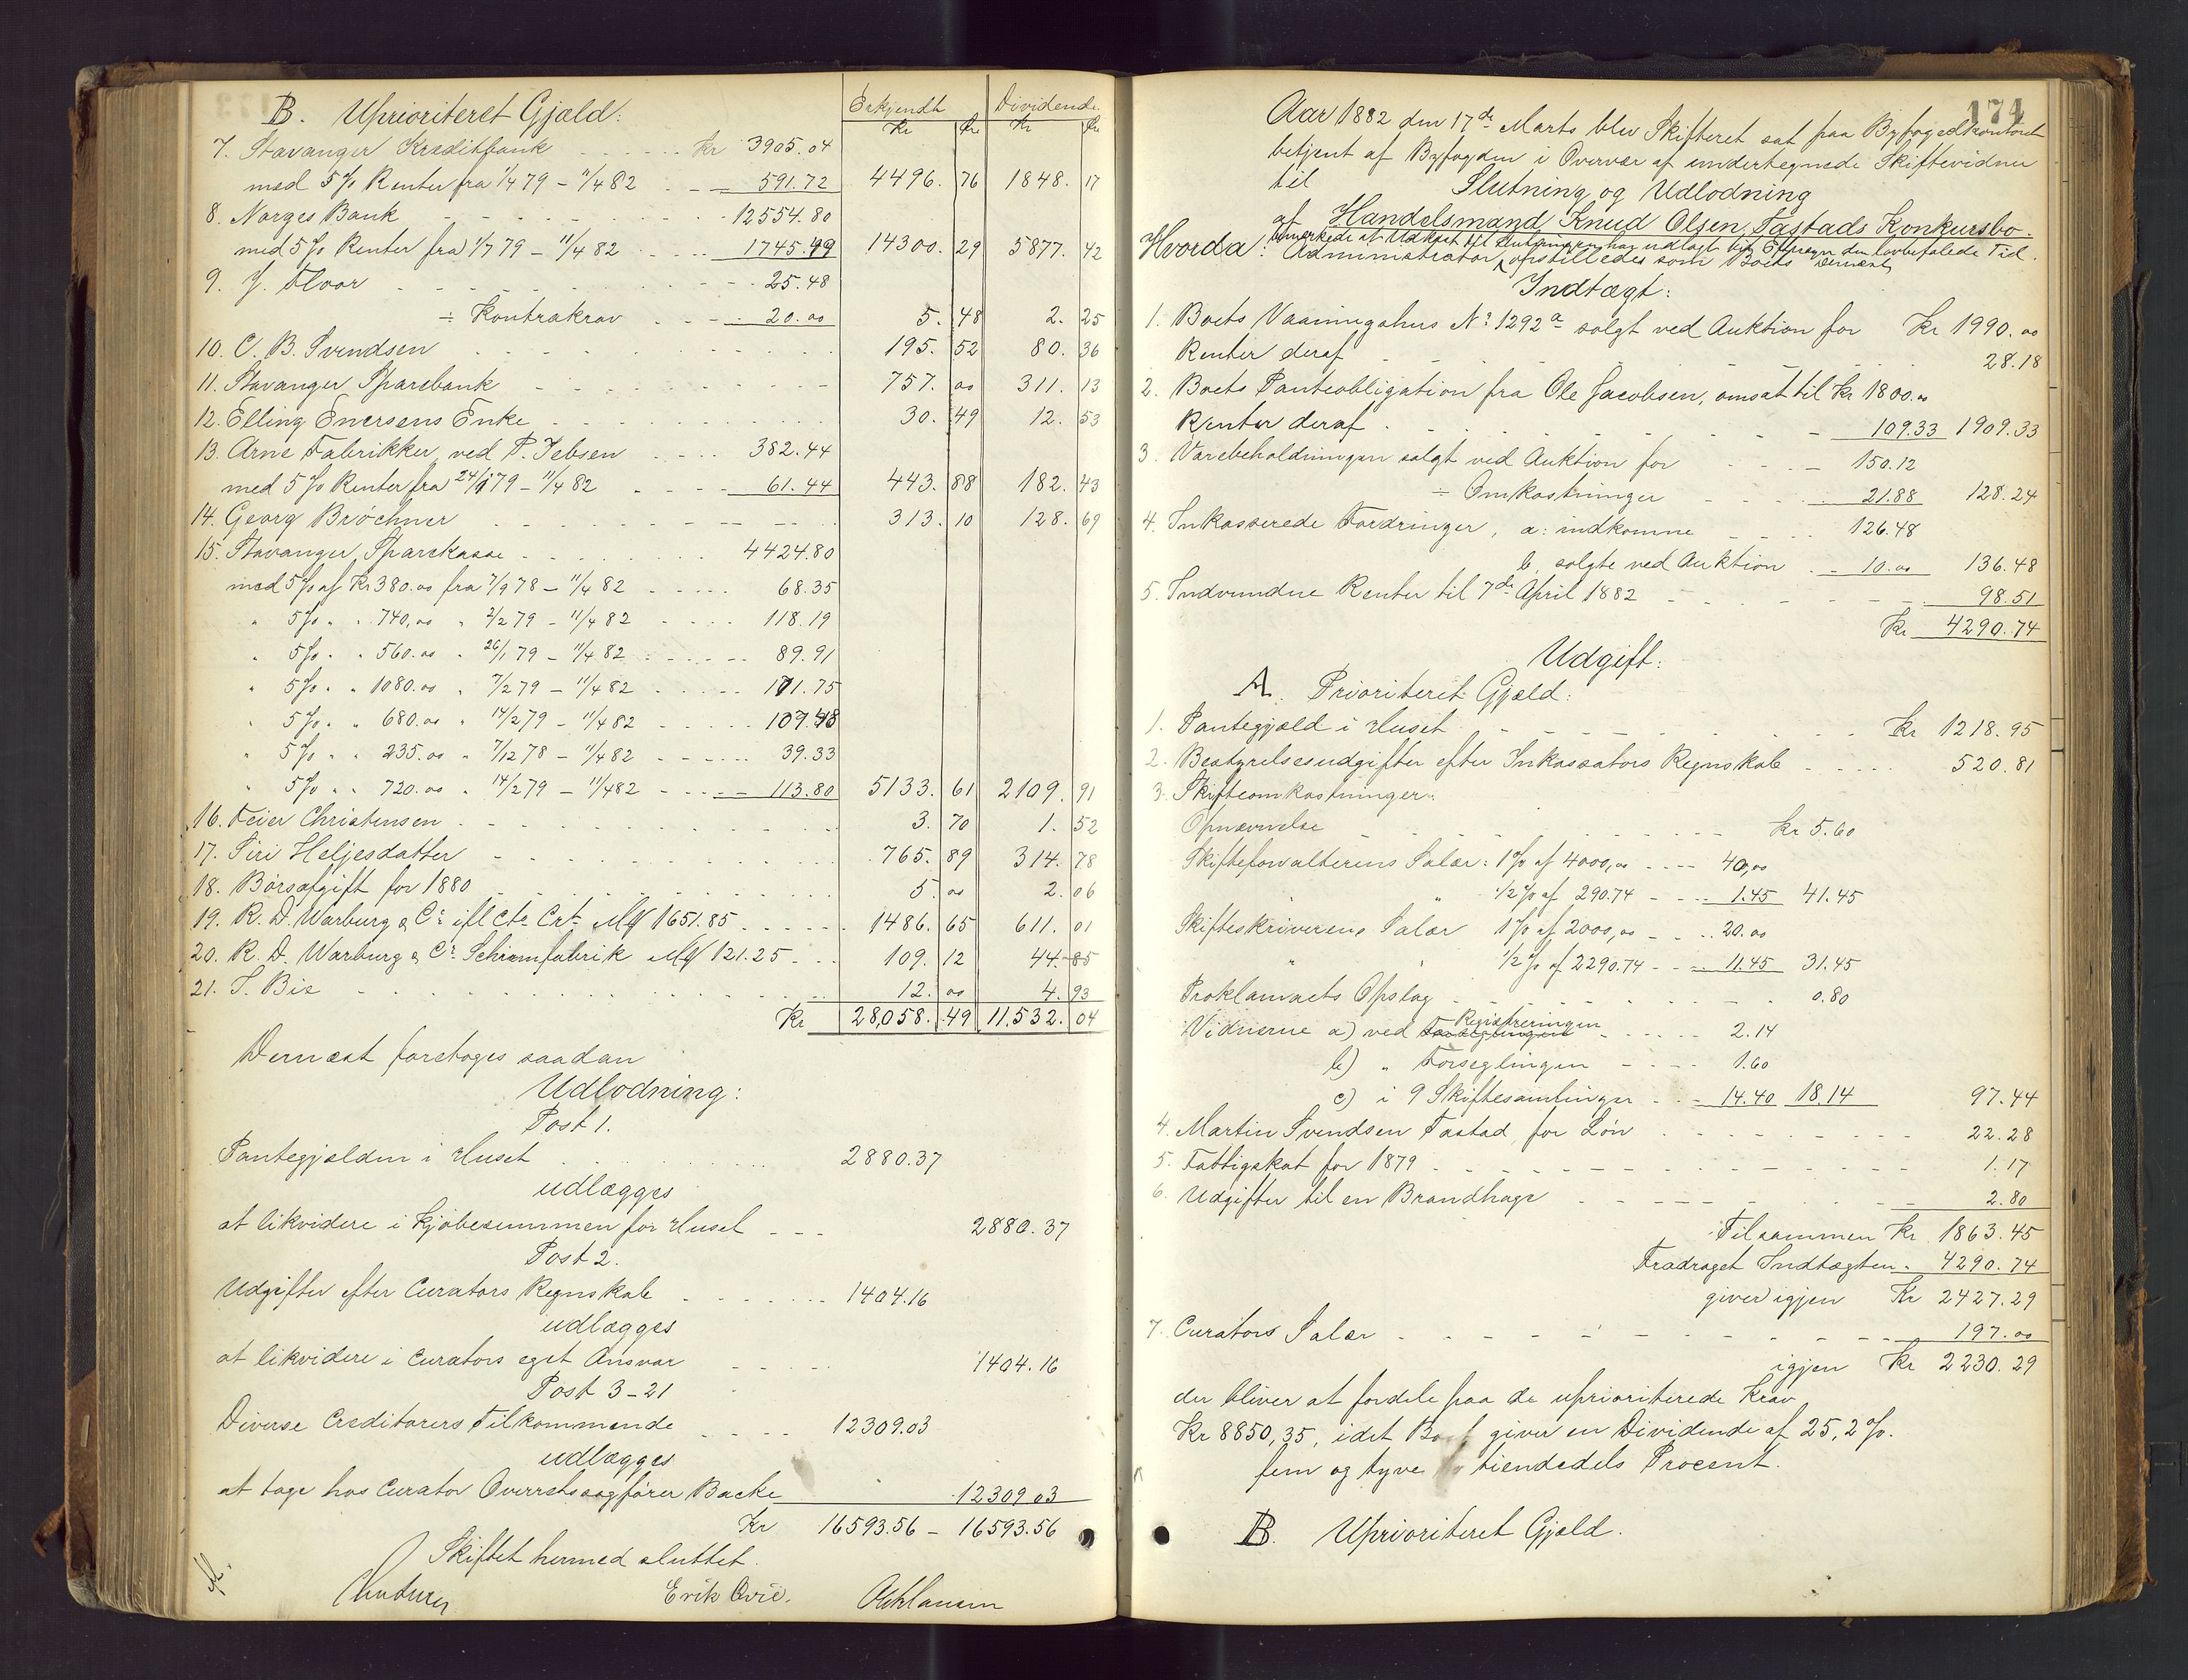 B. Uprioriteret Gjæld:
Erkjendt Dividende
Kr Kr
7. Stavanger Kreditbank Kr 3905.04
med 5 % Renter fra 1/4 79 - 11/4 82 591.72 4496. 76 1848. 17
8. Norges Bank 12554.80
med 5 % Renter fra 1/7 79 - 11/4 82 1745.49 14300. 29 5877. 42
9. J. Floor 25.48
÷ Kontrakrav 20.00 5. 48 2. 25
10. C. B. Svendsen 195. 52 80. 36
11. Stavanger Sparebank 757. 00 311. 13
12. Elling Enersens Enke 30. 49 12. 53
13. Arne Fabrikker ved P. Jebsen 382.44
med 5 % Renter fra 24/1 79 - 11/4 82 61.44 443. 88 182. 43
14. Georg Bröchner 313. 10 128. 69
15. Stavanger Sparekasse 4424.80
med 5 % af Kr 380.00 fra 7/9 78 - 11/4 82 68.35
" 5 % " " 740,00 " 2/2 79 - 11/4 82 118.19
" 5 % " " 560.00 " 26/1 79 - 11/4 82 89.91
" 5 % " " 1080.00 " 7/2 79 - 11/4 82 171.75
" 5 % " " 680.00 " 14/2 79 - 11/4 82 107.48
" 5 % " " 235.00 " 7/12 78 - 11/4 82 39.33
" 5 % " " 720.00 " 14/2 79 - 11/4 82 113.80 5133. 61 2109. 91
16. Feier Christensen 3. 70 1. 52
17. Siri Heljesdatter 765. 89 314. 78
18. Börsafgift for 1880 5. 00 2. 06
19. R. D. Warburg & Co ifl Cto Crt Mk 1651.85 1486. 65 611. 01
20. R. D. Warburg & Co Schirmfabrik Mk 121.25 109. 12 44. 85
21. S. Bie 12. 00 4. 93
Kr 28,058. 49 11,532. 04
Dernæst foretoges saadan
Udlodning:
Post 1.
Pantegjælden i Huset 2880.37
udlægges
at likvidere i Kjöbesummen for Huset 2880.37
Post 2.
Udgifter efter Curators Regnskab 1404.16
udlægges
at likvidere i Curators eget Ansvar 1404.16
Post 3-21
Diverse Creditorers Tilkommende 12309.03
udlægges
at tage hos Curator Overretssagförer Backe 12309 03
Kr 16593.56 - 16593.56
Skiftet hermed sluttet.
Erik Qvie.
174
Aar 1882 den 17de Marts blev Skifteret sat paa Byfogedkontoret
betjent af Byfogden i Overvær af undertegnede Skiftevidner
til Slutning og Udlodning
af Handelsmand Knud Olsen Tastads Konkursbo.
bemærkede at Udkast til Slutningen har udlagt til Eftersyn den lovbefalede Tid.
Hvorda: Administrator, opstilledes som Boets Dernæst
Indtægt:
1. Boets Vaaningshus No 1292a solgt ved Auktion for Kr 1990.00
Renter deraf 28.18
2. Boets Panteobligation fra Ole Jacobsen, omsat til Kr 1800.00
Renter deraf 109.33 1909.33
3. Varebeholdningen solgt ved Auktion for 150.12
÷ Omkostninger 21.88 128.24
4. Inkasserede Fordringer, a: indkomne 126.48
b. solgte ved Auktion 10.00 136.48
5. Indvundne Renter til 7de April 1882 98.51
Kr 4290.74
Udgift:
A. Prioriteret Gjæld:
1. Pantegjæld i Huset Kr 1218.95
2. Bestyrelsesudgifter efter Inkassators Regnskab 520.81
3. Skifteomkostninger:
Opnævnelse Kr 5.60
Skifteforvalterens Salær: 1 % af 4000,00 40,00
" " 1/2 % af 290.74 1.45 41.45
Skifteskriverens Salær 1 % af 2000,00 20.00
" " 1/2 % af 2290.74 11.45 31.45
Proklamaets Opslag 0.80
Registreringen
Vidnerne a) ved Forseglingen 2.14
b) " Forseglingen 1.60
c) i 9 Skiftesamlinger 14.40 18.14 97.44
4. Martin Svendsen Tastad for Lön 22.28
5. Fattigskat for 1879 1.17
6. Udgifter til en Brandhage 2.80
Tilsammen Kr 1863.45
Fradraget Indtægten 4290.74
giver igjen Kr 2427.29
7. Curators Salær 197.00
igjen Kr 2230.29
der bliver at fordele paa de uprioriterede Krav
Kr 8850,35, idet Boet giver en Dividende af 25,2 %.
fem og tyve tiendedels Procent.
B. Uprioriteret Gjæld.